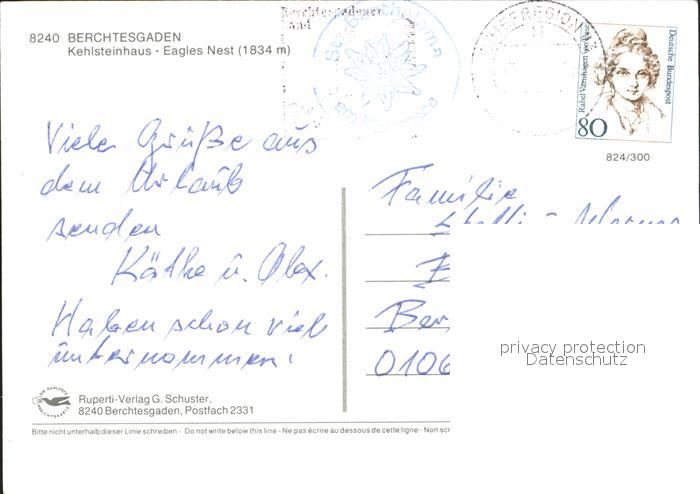 8240 BERCHTESGADEN
Kehlsteinhaus - Eagles Nest (1834 m)
Berchtesgadener
Land
St. Bartholomä
SEEREGION
Rahel Varnhagen von Ense
Deutsche Bundespost
80
824/300
Viele Grüße aus
dem Urlaub
senden
Käthe u. Alex.
Haben schon viel
unternommen!
Familie
Ber
0106
privacy protection
Datenschutz
Ruperti-Verlag G. Schuster,
8240 Berchtesgaden, Postfach 2331
Bitte nicht unterhalb dieser Linie schreiben - Do not write below this line - Ne pas écrire au dessous de cette ligne - Non scr